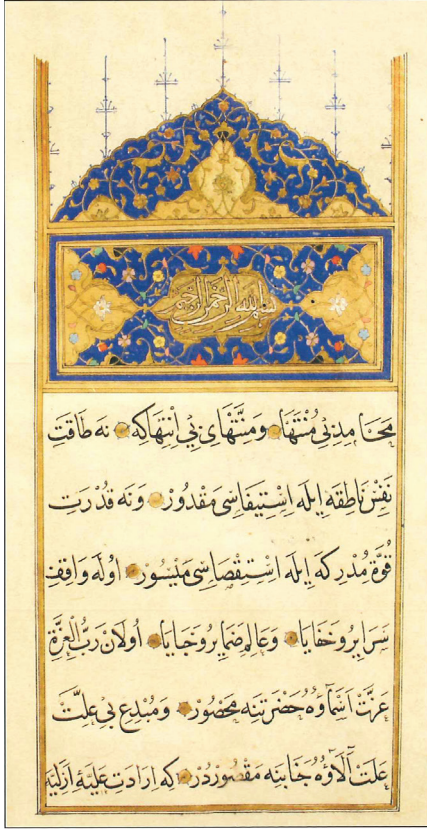 بسم الله الرحمن الرحيم
مَحَامِدِ بِي مُنْتَهَا وَمِنَّتْهَاىِ بِي اِنْتِهَا كِه نَه طَاقَتِ
نَفْسِ نَاطِقَه اِيلَه اِسْتِيفَاسِى مَقْدُورْ وَنَه قُدْرَتِ
قُوَّةِ مُدْرِكَه اِيلَه اِسْتِقْصَاسِى مَيْسُورْ اُولَه وَاقِفِ
سَرَايِرُ وخَفَايَا وَعَالِمِ ضَمَايِرُ وخَبَايَا اُولَانْ رَبُّ الْعِزَّةِ
عَزَّتْ اَسْمَاؤُهُ حَضْرَتِنَه مَحْصُورْ وَمُبْدِعِ بِي عِلَّتْ
عَلَتْ آلَاؤُهُ جَنَابِنَه مَقْصُورْدُرْ كِه اِرَادَتِ عَلِيَّهٔ اَزَلِيَّه